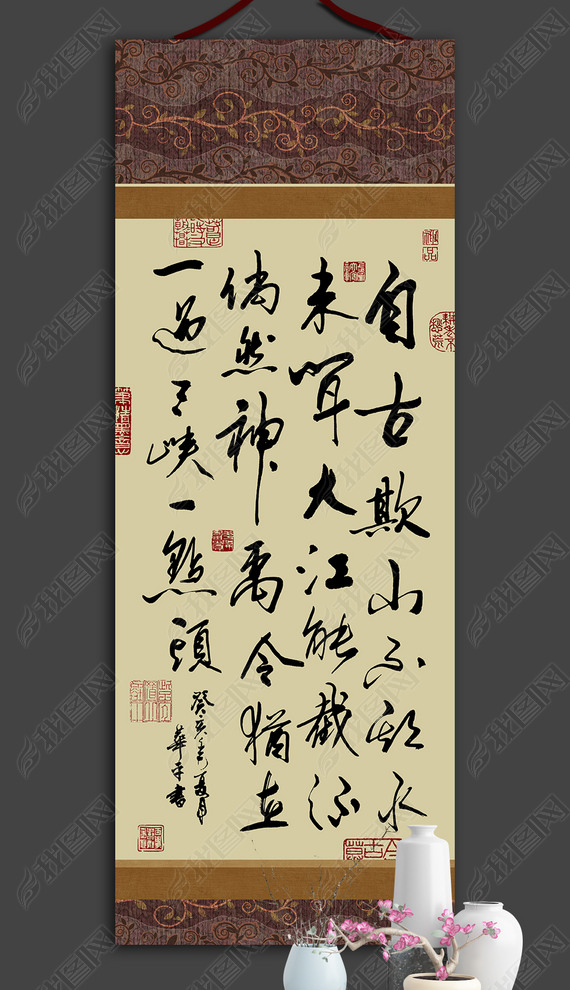 自古欺山不欺水
未聞大江能截流
倘然神禹今猶在
一過三峡一點頭
癸亥夏月
華平書
神品
我图网